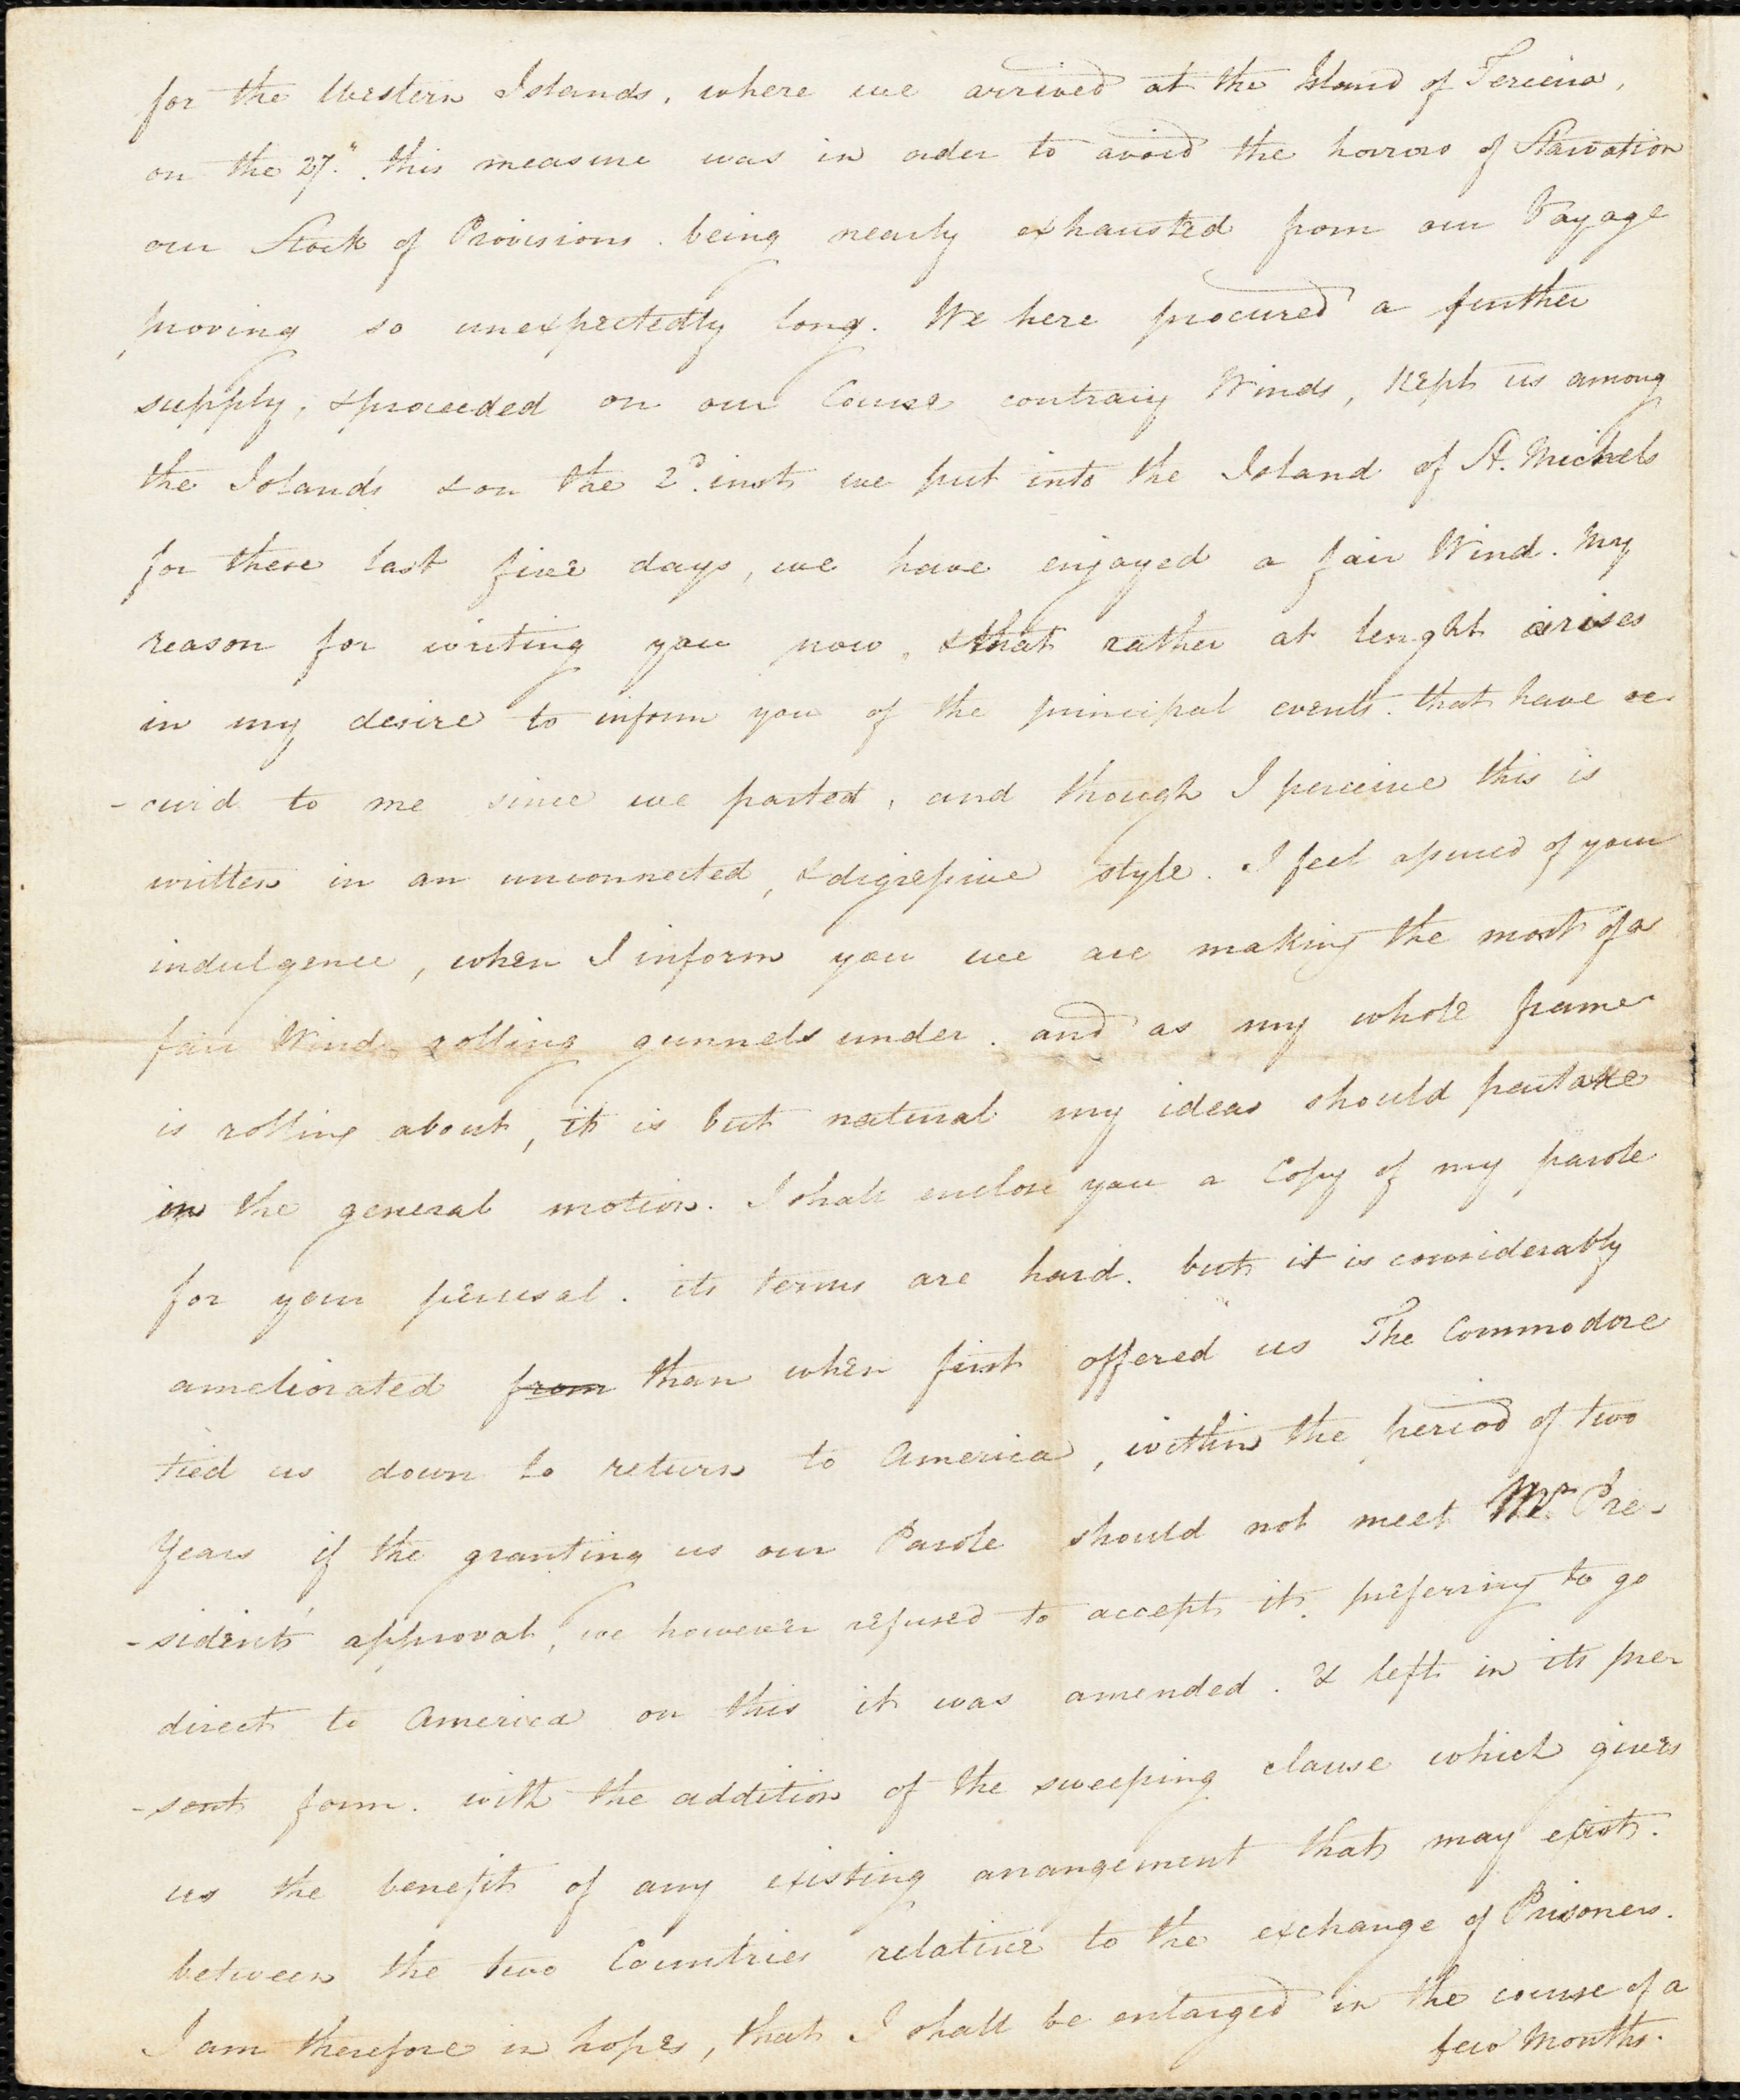 for the Western Islands, where we arrived at the Island of Terceira,
on the 27.th this measure was in order to avoid the horrors of Starvation
our Stock of Provisions being nearly exhausted from our Voyage
proving so unexpectedly long. We here procured a further
supply, & proceeded on our Course contrary Winds, kept us among
the Islands & on the 2d. inst we put into the Island of St. Michels
for these last five days, we have enjoyed a fair Wind. My
reason for writing you now, & that rather at lenght arises
in my desire to inform you of the principal events that have oc-
-curd to me since we parted, and though I perceive this is
written in an unconnected, & digressive style. I feel assured of your
indulgence, when I inform you we are making the most of a
fair Wind rolling gunnels under. and as my whole frame
is rolling about, it is but natural my ideas should partake
in the general motion. I shall enclose you a Copy of my parole
for your perusal. its terms are hard. but it is considerably
ameliorated from than when first offered us The Commodore
tied us down to return to America, within the period of two
Years if the granting us our Parole should not meet Mr. Pre-
-sident's approval, we however refused to accept it, preferring to go
direct to America on this it was amended. & left in its pre
-sent form. with the addition of the sweeping clause which gives
us the benefit of any existing arrangement that may exist.
between the two Countries relative to the exchange of Prisoners.
I am therefore in hopes, that I shall be enlarged in the course of a
few Months.